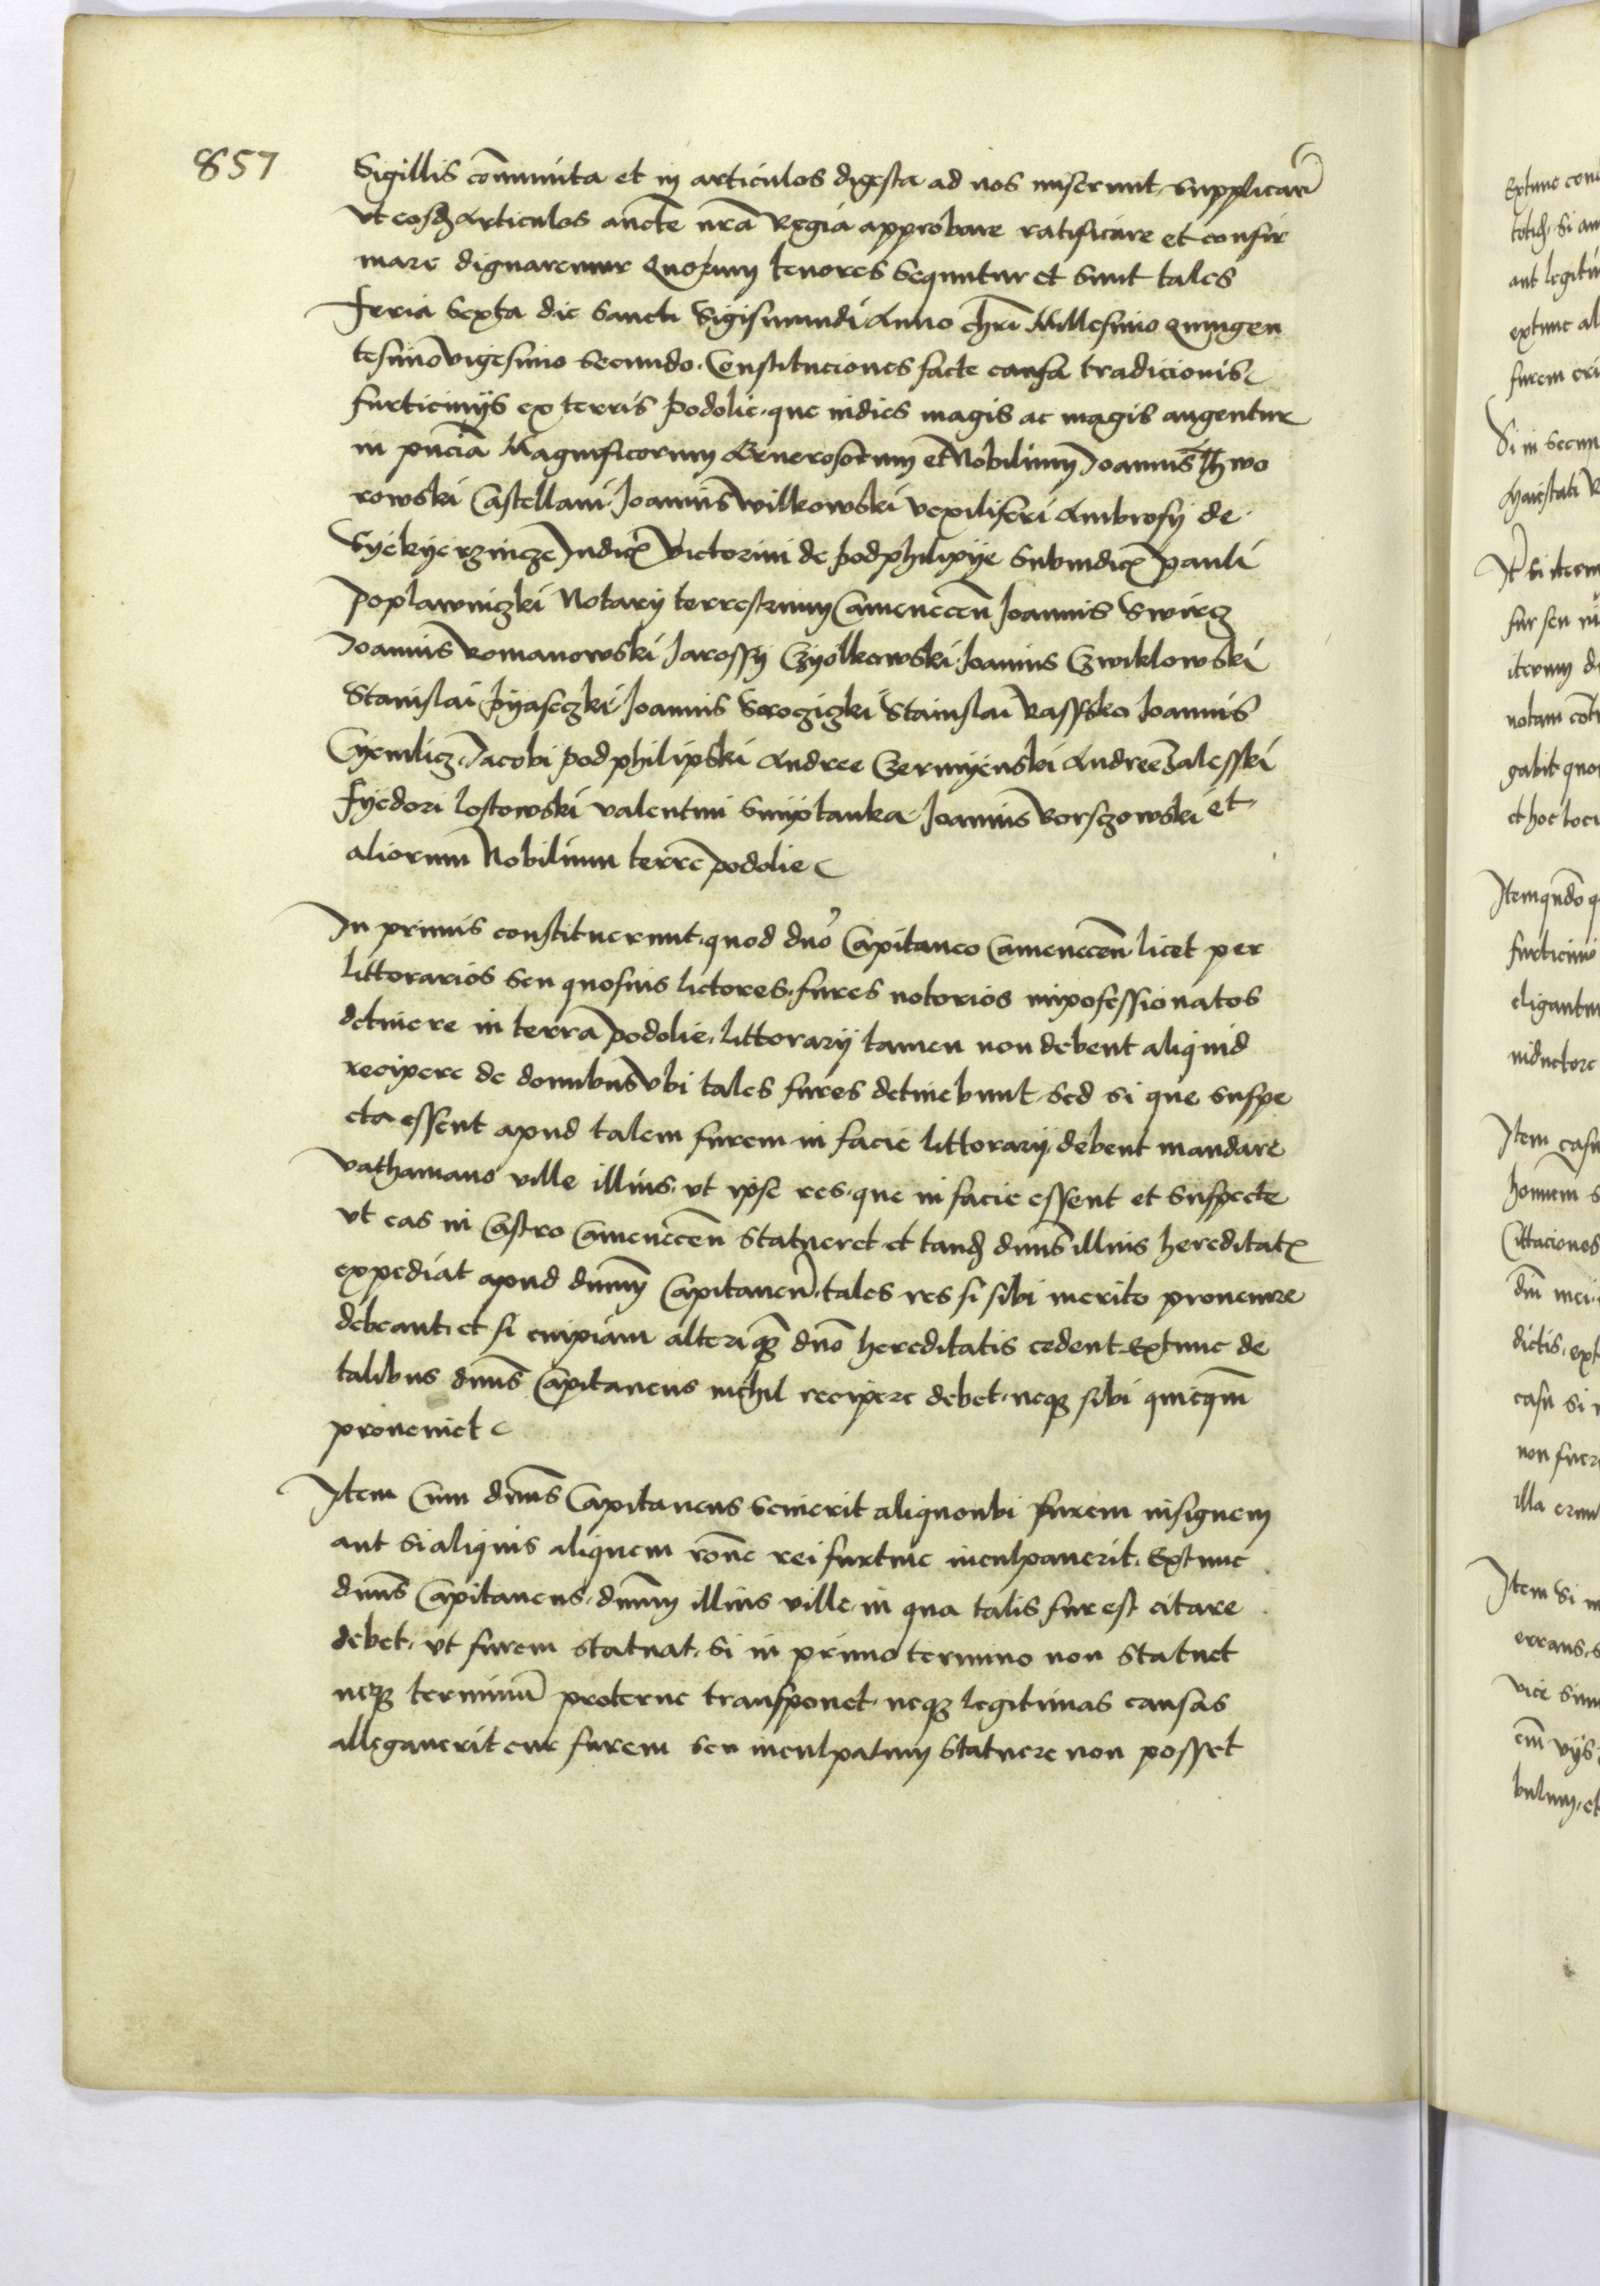 857
Sigillis cōmunita et in articulos digesta ad nos miserunt supplicarũ
vt eosdē Articulos auctte nrā Regia approbare ratificare et confir
mare dignaremur Quorum tenores sequntur et sunt tales
Feria Sexta die Sancti Sigismundi Anno chrī Millesimo Quingen
tesimo vigesimo secundo. Constituciones facte causa tradicionis
furticinijs ex terris Podolie que indies magis ac magis augentur
in pñcia Magnificorum Generosorum et Nobilium Joannis Thwo
rowski Castellani Joannis Wilkowski vexiliferi Ambrosij de
Syekyerzincze Judicꝭ Victorini de Podphilipije Subiudicꝭ Pauli
Poplawniczki Notarij terrestrium Cameneceñ Joannis Swircz
Joannis Romanowski Jarossij Czyolkowski Joannis Czwiklowski
Stanislai Pijaseczki Joannis Srocziczki Stanislai Rassko Joannis
Cyemlicz Jacobi Podphilipski Andree Czermijenski Andree Zalesski
Fyedori lostowski valentini Smijtanka Joannis Vorszowski et
aliorum Nobilium terre Podolie
In primis constituerunt quod dnõ Capitaneo Cameneceñ licet per
littorarios seu quosuis lictores fures notorios inpossessionatos
detinere in terra Podolie littorarij tamen non debent aliquid
recipere de domibus vbi tales fures detinebunt sed si que suspe
cta essent apud talem furem in facie littorarij debent mandare
vathamano ville illius vt ipse res que in facie essent et suspecte
vt eas in Castro Cameneceñ statueret et tandē dnūs illius hereditatꝭ
expediat apud dnūm Capitaneũ tales res si sibi merito prouenire
debeant et si cuipiam alteri quā dnō hereditatis cedent Extunc de
talibus dnūs Capitaneus nichil recipere debet neqꝫ sibi quicqm̄
proueniet
Item Cum dnūs Capitaneus sciuerit aliquoubi furem insignem
aut si aliquis aliquem rōne rei furtiue inculpauerit Extunc
dnūs Capitaneus dnūm illius ville in qua talis fur est citare
debet vt furem statuat si in primo termino non statuet
neqꝫ terminū proterue transponet neqꝫ legitimas causas
allegauerit cur furem seu inculpatum statuere non posset